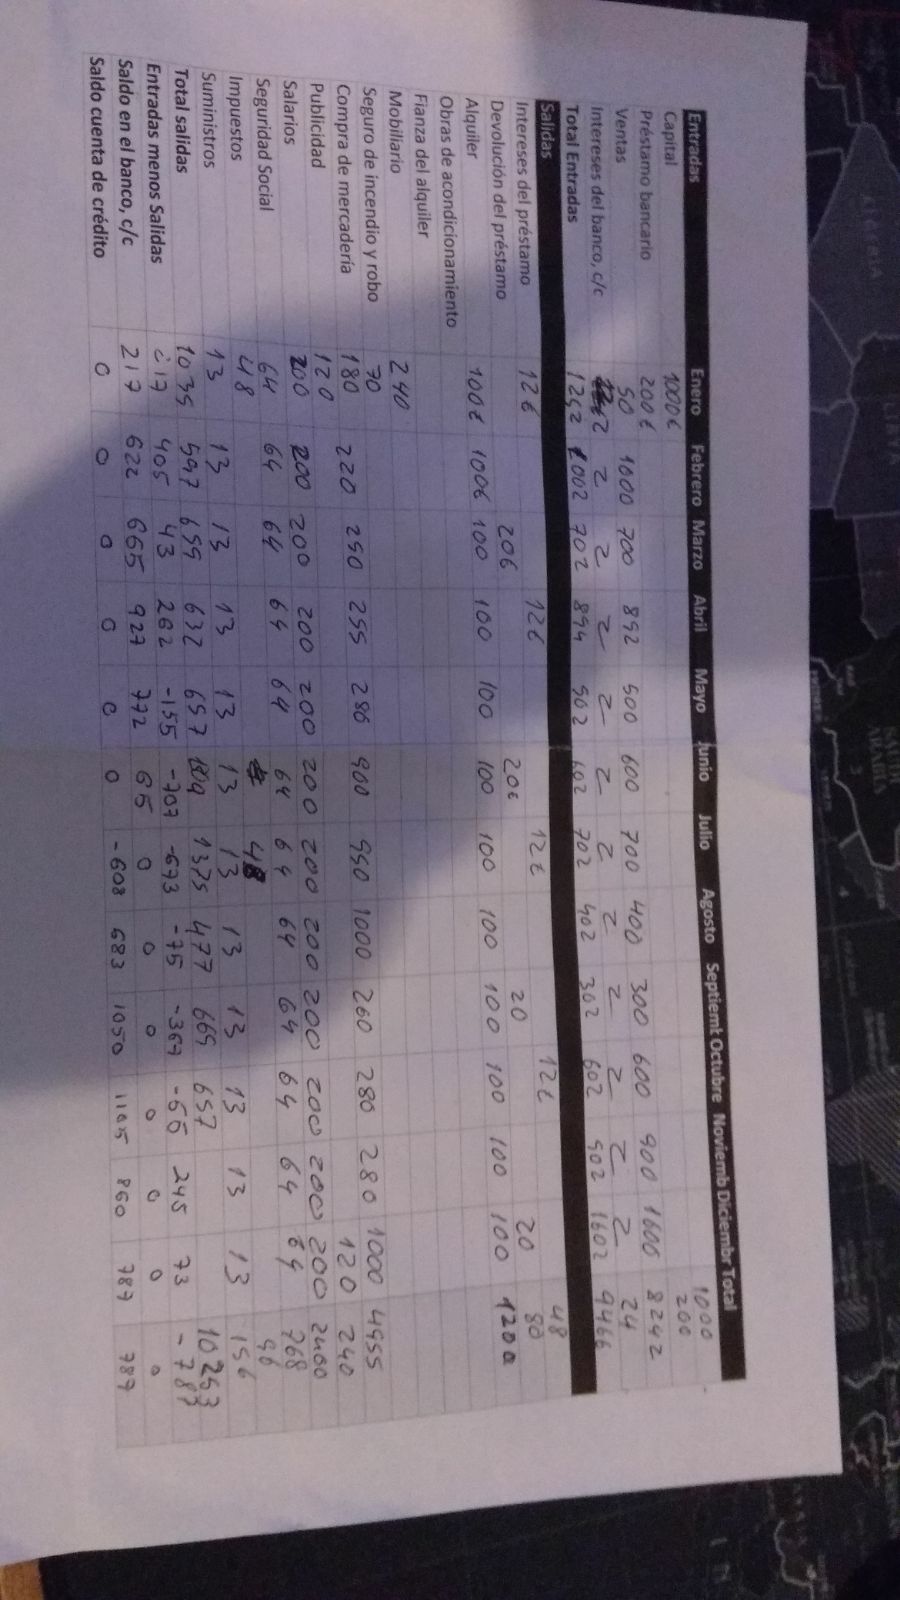 Entradas Enero Febrero Marzo Abril Mayo Junio Julio Agosto Septiemt Octubre Noviemb Diciembr Total
Capital 1000€ 1000
Préstamo bancario 200€ 200
Ventas 50 1000 700 892 500 600 700 400 300 600 900 1600 8242
Intereses del banco, c/c 2 2 2 2 2 2 2 2 2 2 2 2 24
Total Entradas 1252 1002 702 894 502 602 702 402 302 602 902 1602 9466
Salidas
Intereses del préstamo 12€ 12€ 12€ 12€ 48
Devolución del préstamo 20€ 20€ 20 20 80
Alquiler 100€ 100€ 100 100 100 100 100 100 100 100 100 100 1200
Obras de acondicionamiento
Fianza del alquiler
Mobiliario 240
Seguro de incendio y robo 70
Compra de mercadería 180 220 250 255 280 900 950 1000 260 280 280 1000 4955
Publicidad 120 120 240
Salarios 200 200 200 200 200 200 200 200 200 200 200 200 2400
Seguridad Social 64 64 64 64 64 64 64 64 64 64 64 64 768
Impuestos 48 48 96
Suministros 13 13 13 13 13 13 13 13 13 13 13 13 156
Total salidas 1035 597 655 632 657 1375 477 669 657 10253
Entradas menos Salidas 217 405 43 262 -155 -707 -673 -75 -367 -55 245 73 -787
Saldo en el banco, c/c 217 622 665 927 772 65 0 0 0 0 0 0 0
Saldo cuenta de crédito 0 0 0 0 0 0 -608 683 1050 1105 860 787 787